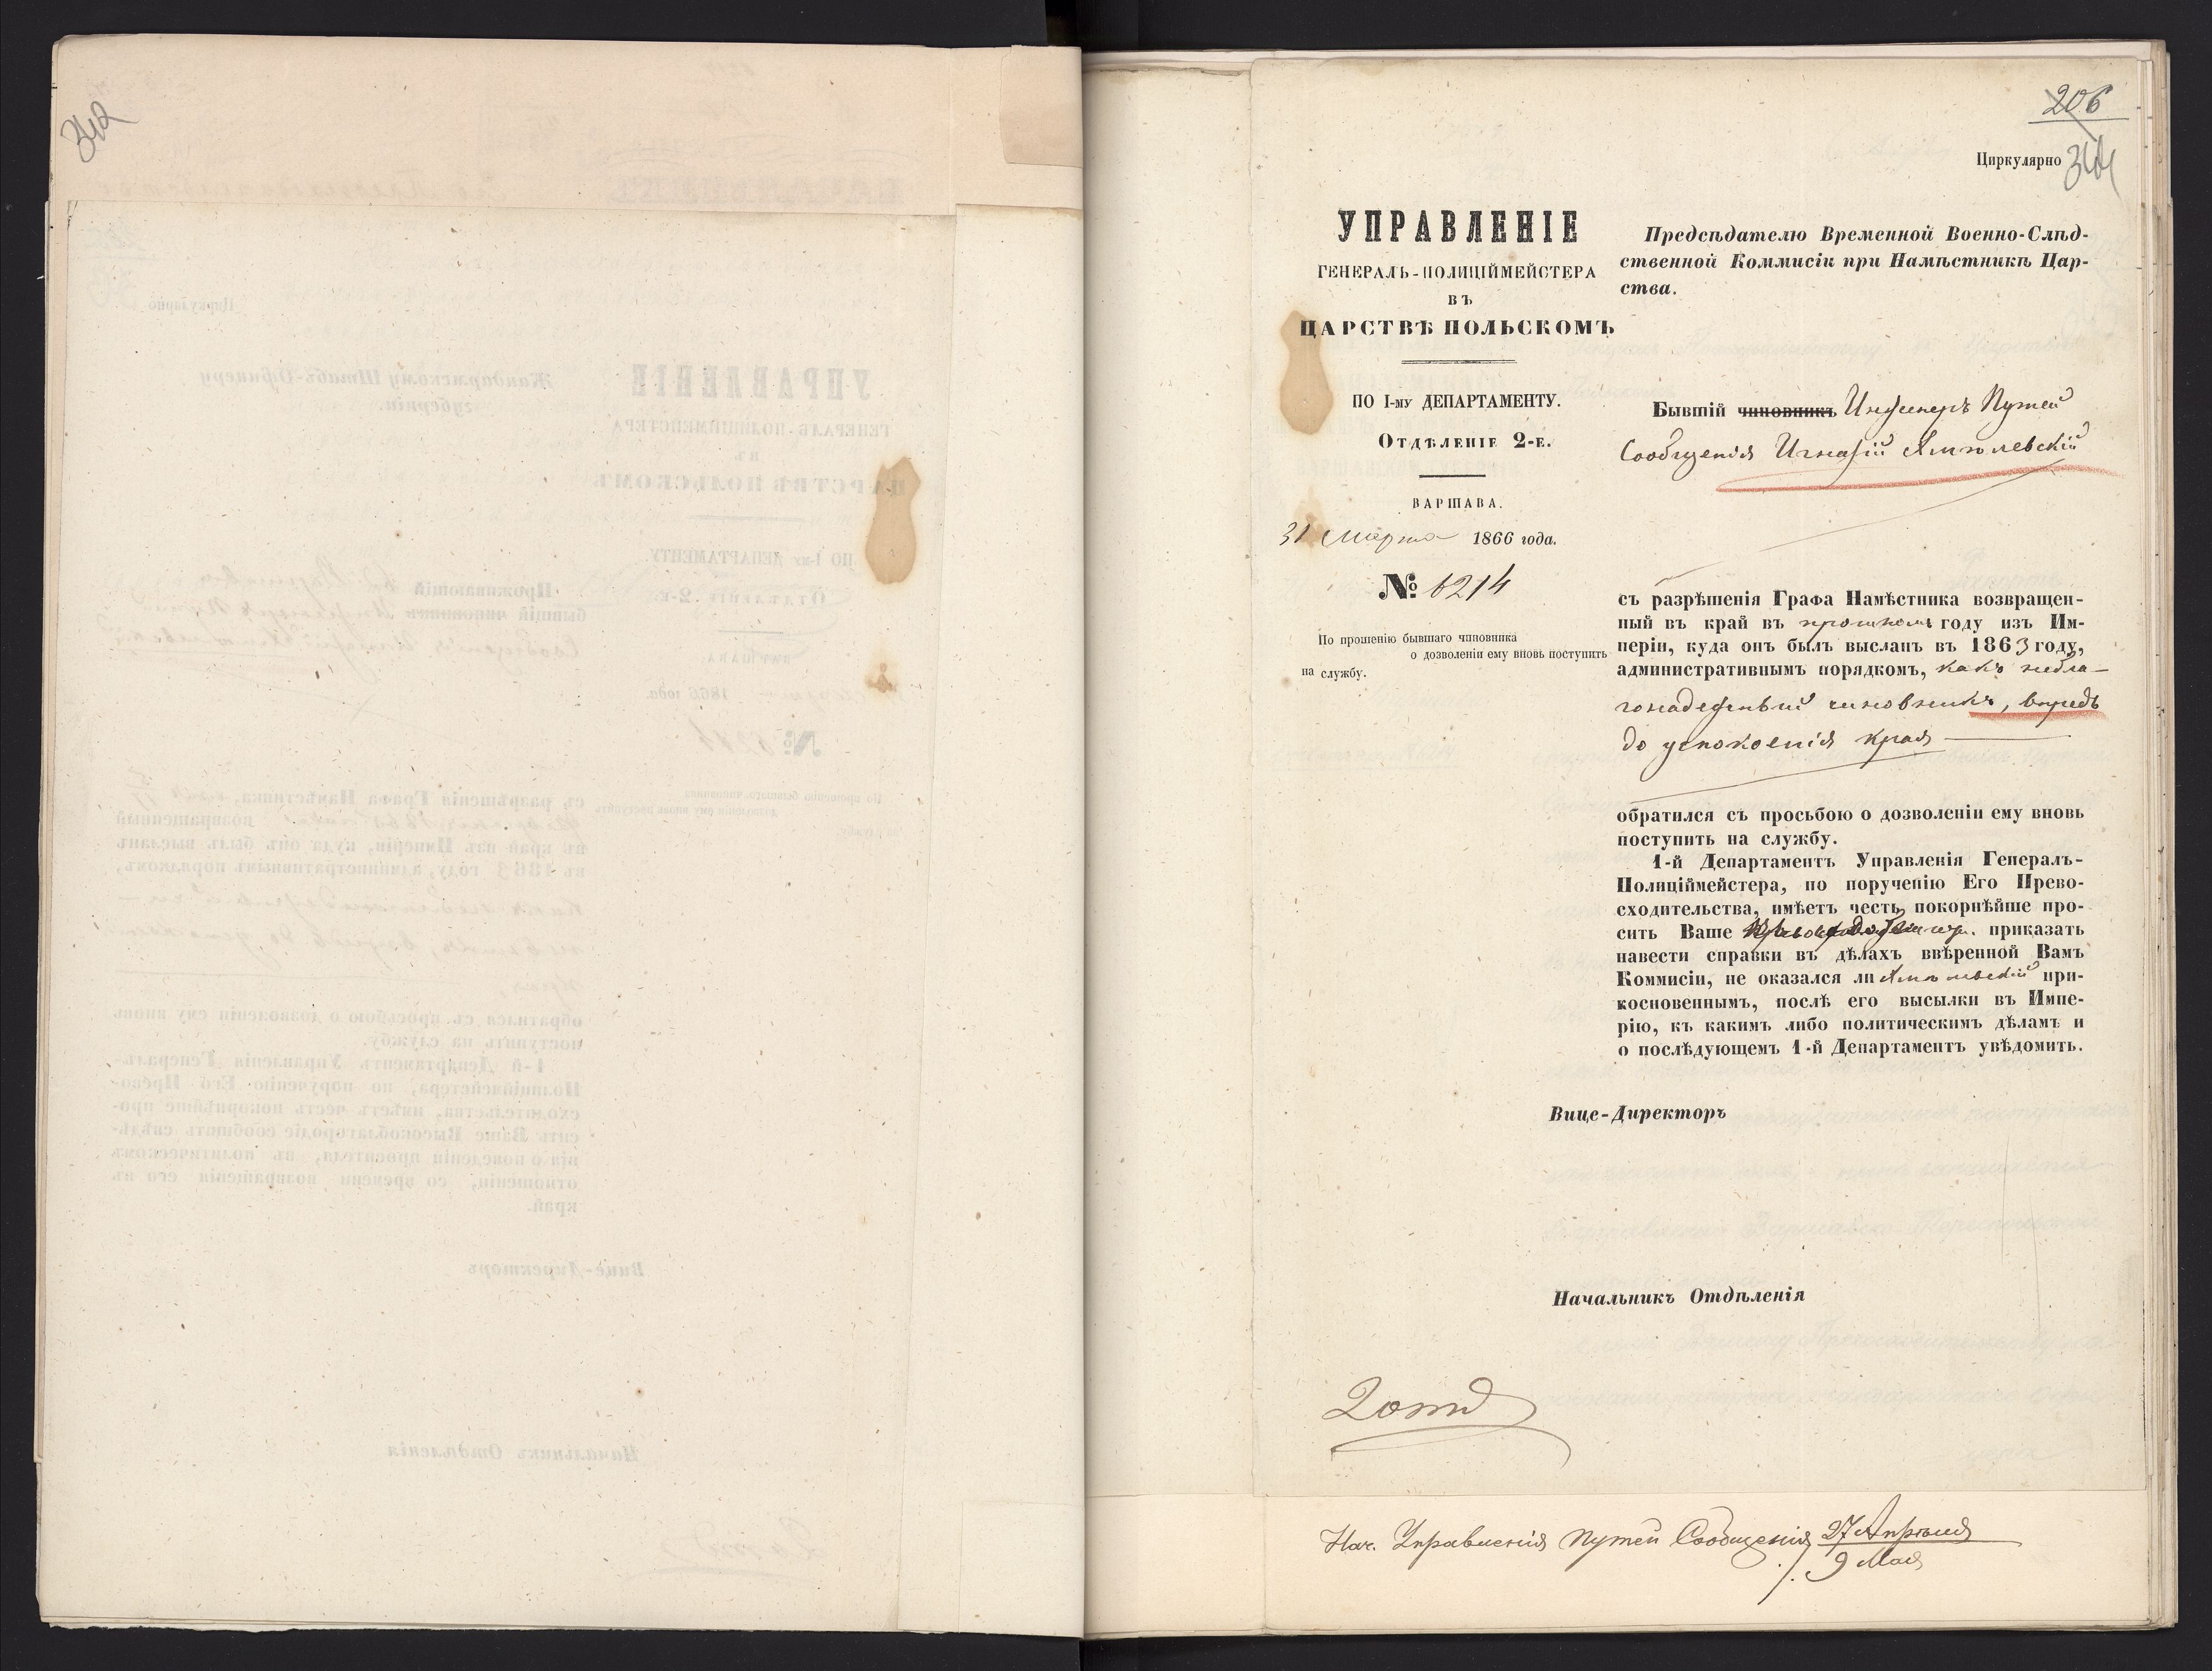 342
206
Циркулярно
УПРАВЛЕНІЕ
ГЕНЕРАЛЪ-ПОЛИЦІЙМЕЙСТЕРА
ВЪ
ЦАРСТВѢ ПОЛЬСКОМЪ
ПО I-МУ ДЕПАРТАМЕНТУ.
ОТДѢЛЕНІЕ 2-Е.
ВАРШАВА.
31 Марта 1866 года.
№ 6214
По прошенію бывшаго чиновника
о дозволеніи ему вновь поступить
на службу.
Предсѣдателю Временной Военно-Слѣд-
ственной Коммисіи при Намѣстникѣ Цар-
ства.
Бывшій чиновникъ Инженеръ Путей
Сообщенія Игнатій
съ разрѣшенія Графа Намѣстника возвращен-
ный въ край въ прошломъ году изъ Им-
періи, куда онъ былъ высланъ въ 1863 году,
административнымъ порядкомъ, какъ небла-
гонадежный чиновникъ, впредь
до успокоенія края
обратился съ просьбою о дозволеніи ему вновь
поступить на службу.
1-й Департаментъ Управленія Генералъ-
Полиціймейстера, по порученію Его Прево-
сходительства, имѣетъ честь покорнѣйше про-
сить Ваше приказать
навести справки въ дѣлахъ ввѣренной Вамъ
Коммисіи, не оказался ли при-
косновеннымъ, послѣ его высылки въ Импе-
рію, къ какимъ либо политическимъ дѣламъ и
о послѣдующемъ 1-й Департаментъ увѣдомить.
Вице-Директоръ
Начальникъ Отдѣленія
Нач. Управленія Путей Сообщенія 27 Апрѣля
9 Мая